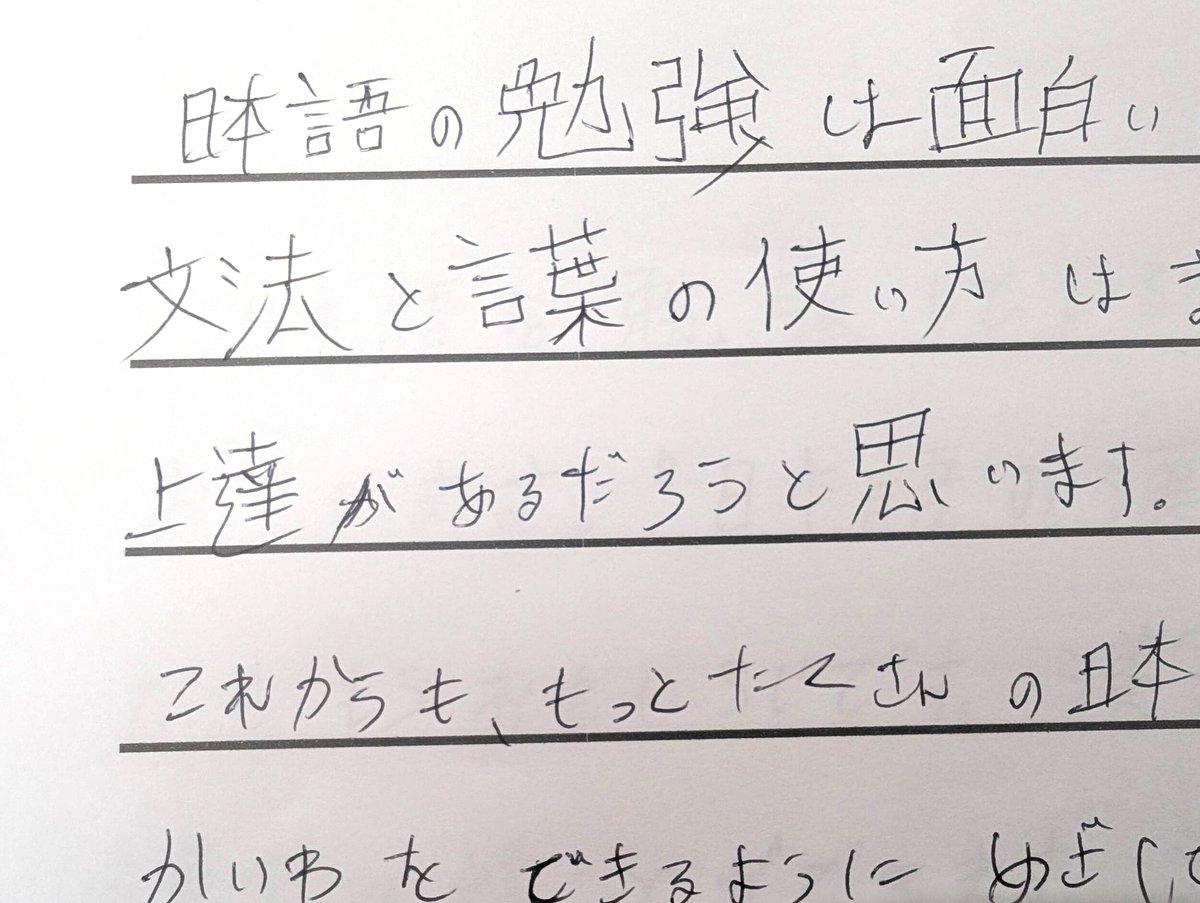 日本語の勉強は面白い
文法と言葉の使い方は
上達があるだろうと思います。
これからも、もっとたくさんの日本
かいわをできるようにめざし